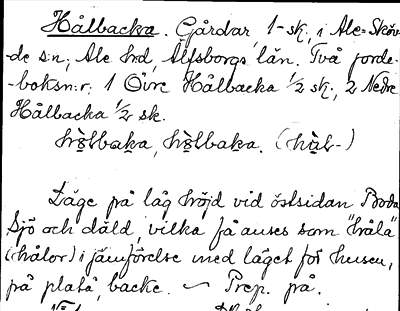 Hålbacka. Gårdar, 1 sk. i Ale=Sköv-
de s:n, Ale h:d, Älfsborgs län. Två jorde-
-boksn:r: 1 Övre Hålbacka 1/2 sk., 2 Nedre
Hålbacka 1/2 sk.
Läge på låg höjd vid östsidan Boda
sjö och däld, vilka få anses som "håla"
(hålor) i jämförelse med läget för husen,
på platå, backe. — Prep. på.